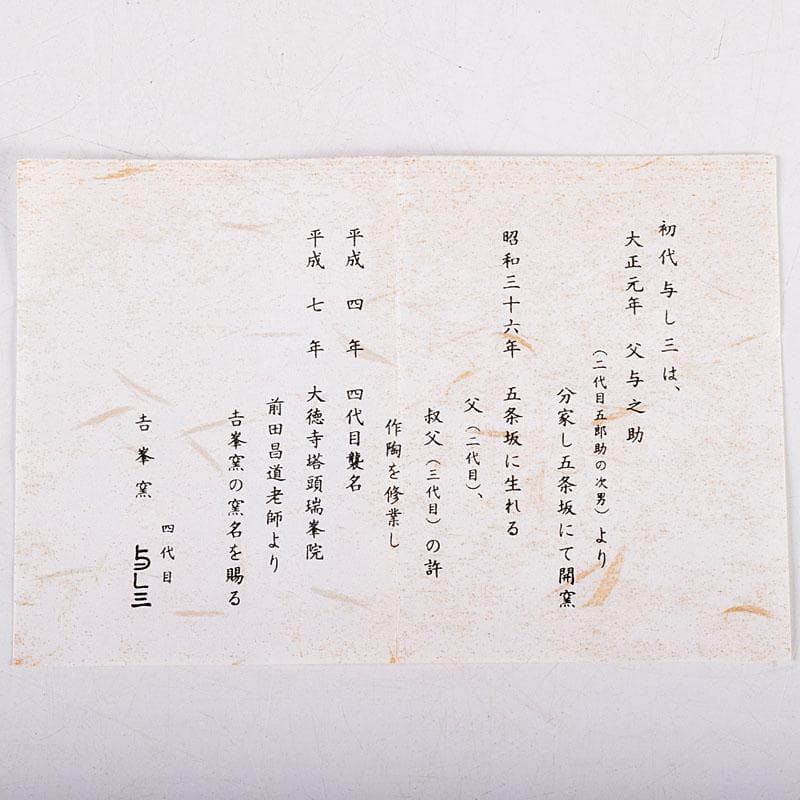 初代与し三は、
大正元年 父与之助
(二代目五郎助の次男)より
分家し五条坂にて開窯
昭和三十六年 五条坂に生れる
父(二代目)、
叔父(三代目)の許
作陶を修業し
平成 四 年 四代目襲名
平成 七 年 大徳寺塔頭瑞峯院
前田昌道老師より
吉峯窯の窯名を賜る
吉峯窯
四代目
与し三